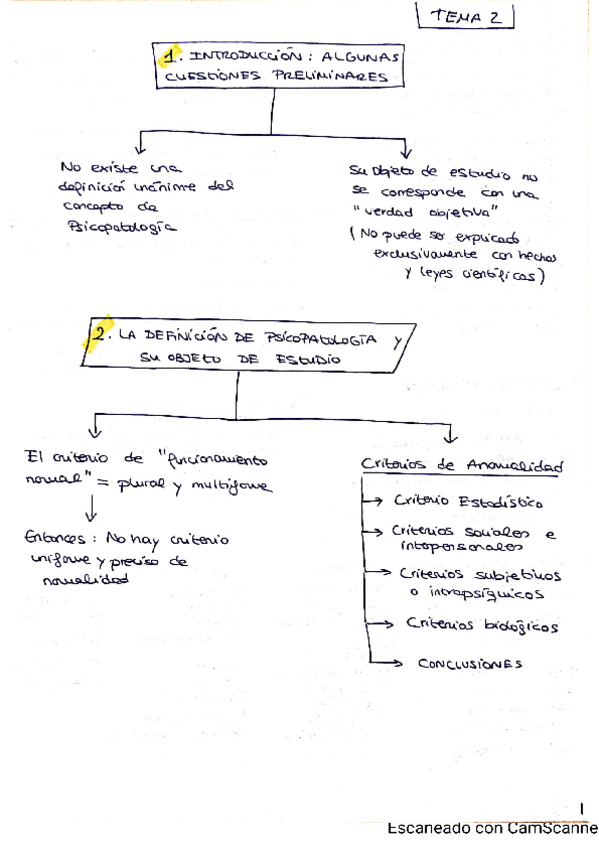 TEMA 2
1. INTRODUCCIÓN: ALGUNAS
CUESTIONES PRELIMINARES
No existe una
definición unánime del
concepto de
Psicopatología
Su objeto de estudio no
se corresponde con una
"verdad objetiva"
(No puede ser explicado
exclusivamente con hechos
y leyes científicas)
2. LA DEFINICIÓN DE PSICOPATOLOGÍA Y
SU OBJETO DE ESTUDIO
El criterio de "funcionamiento
normal" = plural y multiforme
Entonces: No hay criterio
uniforme y preciso de
normalidad
Criterios de Anormalidad
Criterio Estadístico
Criterios sociales e
interpersonales
Criterios subjetivos
o intrapsíquicos
Criterios biológicos
CONCLUSIONES
1
Escaneado con CamScanne